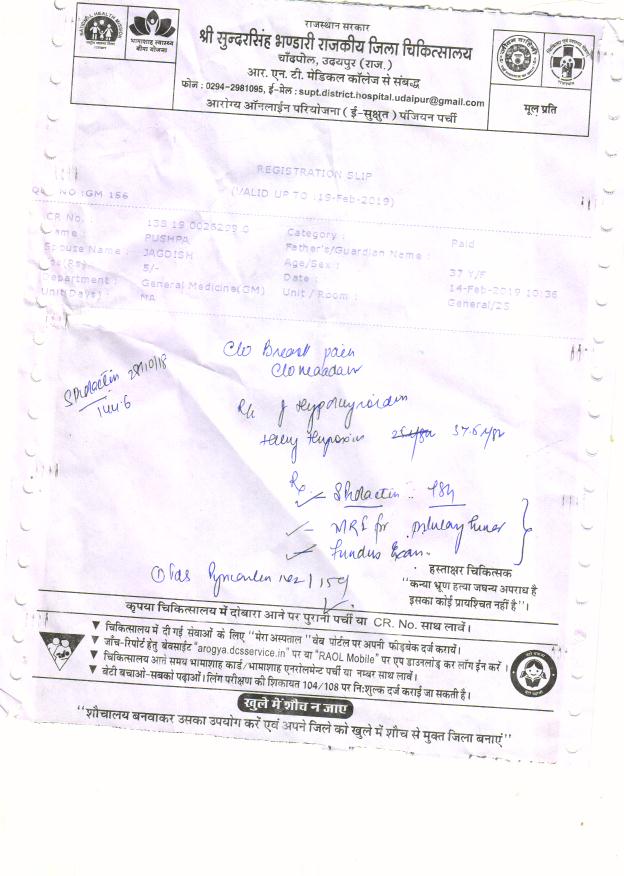 राजस्थान सरकार
श्री सुन्दरसिंह भण्डारी राजकीय जिला चिकित्सालय
चाँदपोल, उदयपुर (राज.)
आर. एन. टी. मेडिकल कॉलेज से संबद्ध
फोन : 0294-2981095, ई-मेल : supt.district.hospital.udaipur@gmail.com
आरोग्य ऑनलाईन परियोजना ( ई-सुश्रुत ) पंजियन पर्ची
भामाशाह स्वास्थ्य
बीमा योजना
मूल प्रति
REGISTRATION SLIP
(VALID UP TO :19-Feb-2019)
NO :GM 156
CR No. :
Category : Paid
PUSHPA
Father's/Guardian Name :
Spouse Name : JAGDISH
Age/Sex : 37 Y/F
5/-
Date : 14-Feb-2019 10:36
Department : General Medicine(GM)
Unit / Room : General/25
Unit(Days) : NA
C/o Breast pain
S Prolactin 29/10/18
144.6
S Prolactin
MRI for pituitary
Fundus Exam.
हस्ताक्षर चिकित्सक
"कन्या भ्रूण हत्या जघन्य अपराध है
इसका कोई प्रायश्चित नहीं है"।
कृपया चिकित्सालय में दोबारा आने पर पुरानी पर्ची या CR. No. साथ लावें।
▼ चिकित्सालय में दी गई सेवाओं के लिए "मेरा अस्पताल" वेब पोर्टल पर अपनी फीडबेक दर्ज करायें।
▼ जाँच-रिपोर्ट हेतु वेबसाईट "arogya.dcsservice.in" पर या "RAOL Mobile" पर एप डाउनलोड कर लॉग ईन करें।
▼ चिकित्सालय आते समय भामाशाह कार्ड/भामाशाह एनरोलमेण्ट पर्ची या नम्बर साथ लावें।
▼ बेटी बचाओ-सबको पढ़ाओ। लिंग परीक्षण की शिकायत 104/108 पर नि:शुल्क दर्ज कराई जा सकती है।
खुले में शौच न जाए
"शौचालय बनवाकर उसका उपयोग करें एवं अपने जिले को खुले में शौच से मुक्त जिला बनाएं"